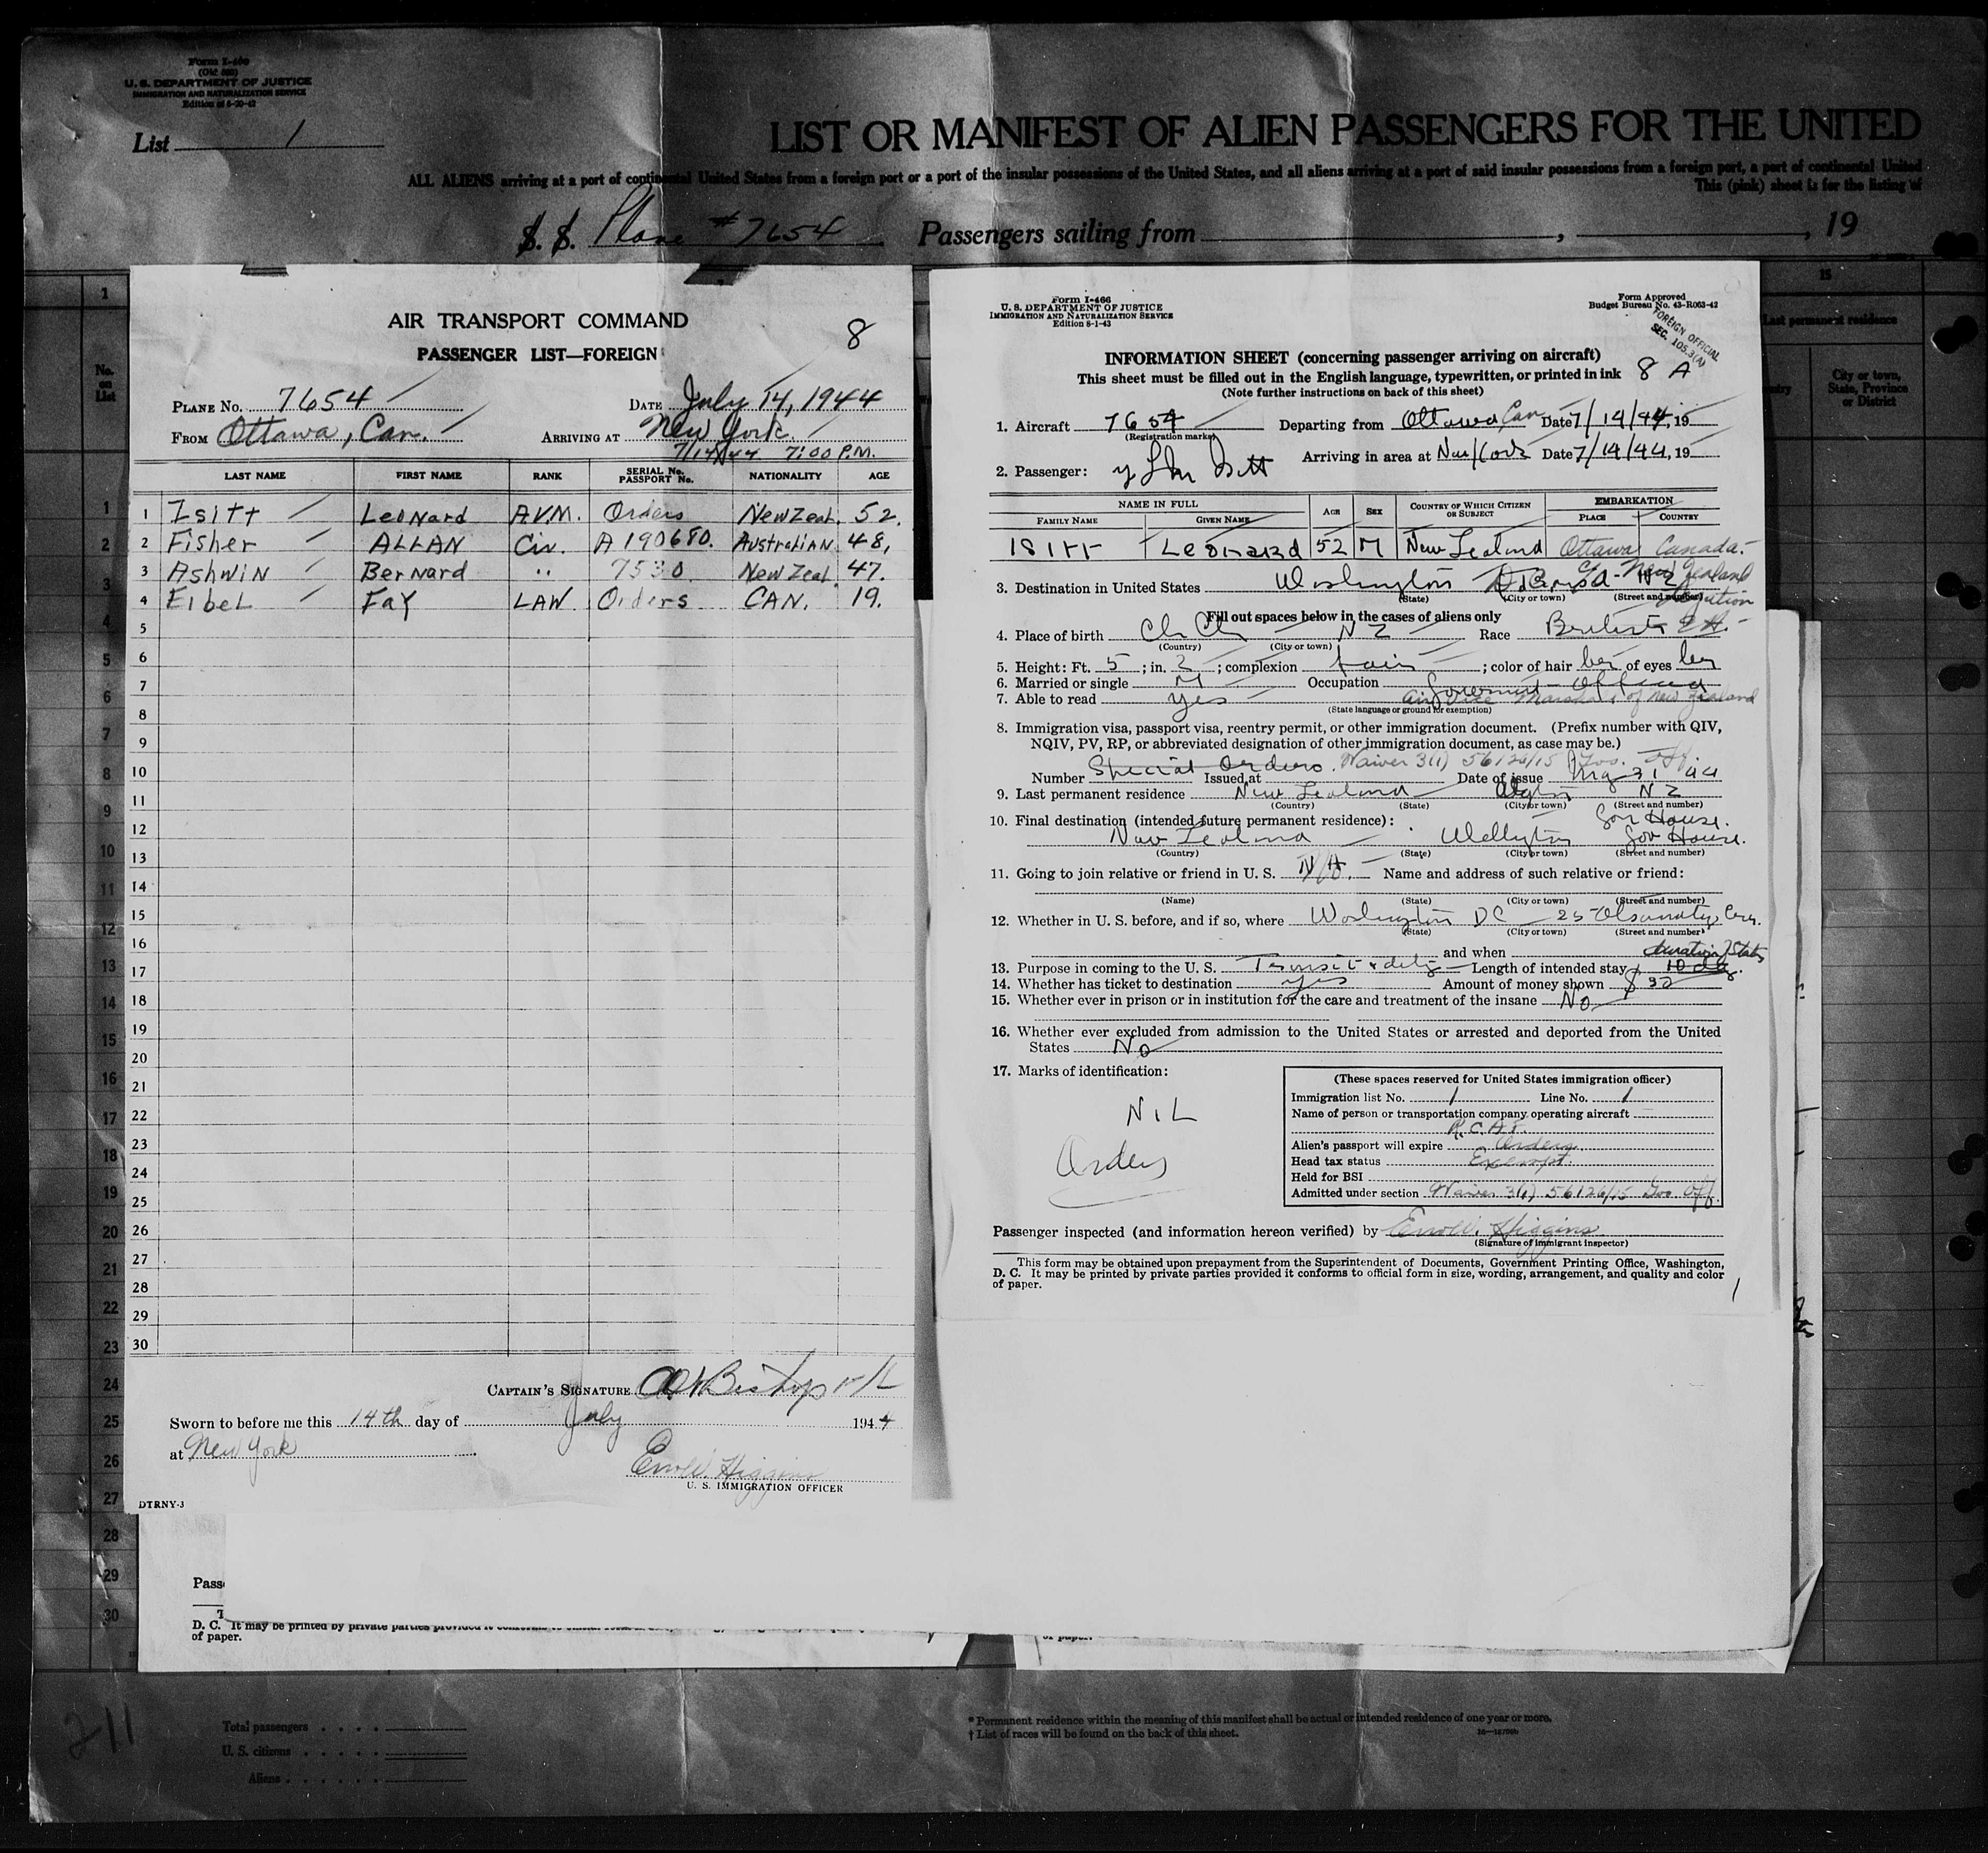 Form I-466
(Old 680)
U. S. DEPARTMENT OF JUSTICE
IMMIGRATION AND NATURALIZATION SERVICE
Edition of 6-20-42
List 1
LIST OR MANIFEST OF ALIEN PASSENGERS FOR THE UNITED
ALL ALIENS arriving at a port of continental United States from a foreign port or a port of the insular possessions of the United States, and all aliens arriving at a port of said insular possessions from a foreign port, a port of continental United
This (pink) sheet is for the listing of
S. S. Plane #7654 Passengers sailing from , , 19
AIR TRANSPORT COMMAND
8
PASSENGER LIST—FOREIGN
PLANE No. 7654 DATE July 14, 1944
FROM Ottawa, Can. ARRIVING AT New York.
7/14/44 7:00 P.M.
LAST NAME FIRST NAME RANK SERIAL No. PASSPORT No. NATIONALITY AGE
1 Isitt Leonard A.V.M. Orders New Zeal. 52.
2 Fisher ALLAN Civ. A 190680. Australian 48,
3 Ashwin Bernard " 7530 New Zeal. 47.
4 Eibel Fay LAW. Orders CAN. 19.
5
6
7
8
9
10
11
12
13
14
15
16
17
18
19
20
21
22
23
24
25
26
27
28
29
30
CAPTAIN'S SIGNATURE Bishop F/L
Sworn to before me this 14th day of July 1944
at New York
Higgins
U. S. IMMIGRATION OFFICER
DTRNY-3
Form I-466
U. S. DEPARTMENT OF JUSTICE
IMMIGRATION AND NATURALIZATION SERVICE
Edition 8-1-43
Form Approved
Budget Bureau No. 43-R063-42
FOREIGN OFFICIAL
SEC. 105.3(A)
INFORMATION SHEET (concerning passenger arriving on aircraft)
This sheet must be filled out in the English language, typewritten, or printed in ink 8 A
(Note further instructions on back of this sheet)
1. Aircraft 7654 Departing from Ottawa, Can Date 7/14/44, 19
(Registration marks)
Arriving in area at New York Date 7/14/44, 19
2. Passenger: Isitt
NAME IN FULL AGE SEX COUNTRY OF WHICH CITIZEN OR SUBJECT EMBARKATION
FAMILY NAME GIVEN NAME PLACE COUNTRY
ISITT Leonard 52 M New Zealand Ottawa Canada.
3. Destination in United States Washington D.C. c/o New Zealand Legation
(State) (City or town) (Street and number)
Fill out spaces below in the cases of aliens only
4. Place of birth Ch Ch N Z Race British
(Country) (City or town)
5. Height: Ft. 5 ; in. 2 ; complexion fair ; color of hair of eyes
6. Married or single M Occupation Government Official
7. Able to read yes Air Vice Marshal of New Zealand
(State language or ground for exemption)
8. Immigration visa, passport visa, reentry permit, or other immigration document. (Prefix number with QIV,
NQIV, PV, RP, or abbreviated designation of other immigration document, as case may be.)
Number Special Orders. Waiver 3(1) 56126/15 Gov. Off. Issued at Date of issue 44
9. Last permanent residence New Zealand Wgton N Z
(Country) (State) (City or town) (Street and number)
10. Final destination (intended future permanent residence): Gov House.
New Zealand Wellington Gov House.
(Country) (State) (City or town) (Street and number)
11. Going to join relative or friend in U. S. N/A. Name and address of such relative or friend:
(Name) (State) (City or town) (Street and number)
12. Whether in U. S. before, and if so, where Washington DC
(State) (City or town) (Street and number)
and when duration status
13. Purpose in coming to the U. S. Transit & duty Length of intended stay 10 days.
14. Whether has ticket to destination yes Amount of money shown $
15. Whether ever in prison or in institution for the care and treatment of the insane No
16. Whether ever excluded from admission to the United States or arrested and deported from the United
States No
17. Marks of identification:
NIL
Orders
(These spaces reserved for United States immigration officer)
Immigration list No. 1 Line No. 1
Name of person or transportation company operating aircraft
R.C.A.F.
Alien's passport will expire Orders
Head tax status Exempt.
Held for BSI
Admitted under section Waiver 3(1) 56126/15 Gov Off.
Passenger inspected (and information hereon verified) by Higgins
(Signature of immigrant inspector)
This form may be obtained upon prepayment from the Superintendent of Documents, Government Printing Office, Washington,
D. C. It may be printed by private parties provided it conforms to official form in size, wording, arrangement, and quality and color
of paper.
1
15
Last permanent residence
City or town, State, Province or District
No. on List
1
2
3
4
5
6
7
8
9
10
11
12
13
14
15
16
17
18
19
20
21
22
23
24
25
26
27
28
29
30
Pass
T
D. C. It may be printed by private parties provided it conforms to
of paper.
of paper.
211
Total passengers
U. S. citizens
Aliens
* Permanent residence within the meaning of this manifest shall be actual or intended residence of one year or more.
† List of races will be found on the back of this sheet.